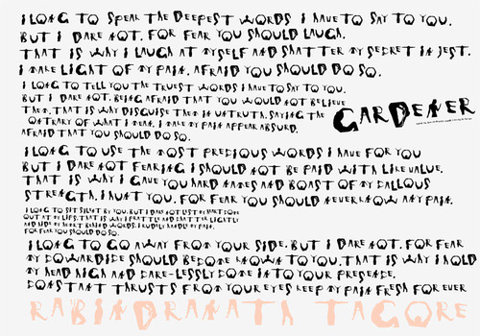 I LONG TO SPEAK THE DEEPEST WORDS I HAVE TO SAY TO YOU,
BUT I DARE NOT, FOR FEAR YOU SHOULD LAUGH.
THAT IS WHY I LAUGH AT MYSELF AND SHATTER MY SECRET IN JEST.
I MAKE LIGHT OF MY PAIN, AFRAID YOU SHOULD DO SO.
I LONG TO TELL YOU THE TRUEST WORDS I HAVE TO SAY TO YOU.
BUT I DARE NOT, BEING AFRAID THAT YOU WOULD NOT BELIEVE
THEM. THAT IS WHY DISGUISE THEM IN UNTRUTH, SAYING THE
CONTRARY OF WHAT I MEAN. I MAKE MY PAIN APPEAR ABSURD,
AFRAID THAT YOU SHOULD DO SO.
GARDENER
I LONG TO USE THE MOST PRECIOUS WORDS I HAVE FOR YOU
BUT I DARE NOT FEARING I SHOULD NOT BE PAID WITH LIKE VALUE.
THAT IS WHY I GAVE YOU HARD NAMES AND BOAST OF MY CALLOUS
STRENGTH. I HURT YOU, FOR FEAR YOU SHOULD NEVER KNOW ANY PAIN.
I LONG TO SIT SILENT BY YOU, BUT I DARE NOT LEST MY HEART COME
OUT AT MY LIPS. THAT IS WHY I PRATTLE AND CHATTER LIGHTLY
AND HIDE MY HEART BEHIND WORDS. I RUDELY HANDLE MY PAIN,
FOR FEAR YOU SHOULD DO SO.
I LONG TO GO AWAY FROM YOUR SIDE, BUT I DARE NOT, FOR FEAR
MY COWARDICE SHOULD BECOME KNOWN TO YOU. THAT IS WHY I HOLD
MY HEAD HIGH AND CARE-LESSLY COME INTO YOUR PRESENCE.
CONSTANT THRUSTS FROM YOUR EYES KEEP MY PAIN FRESH FOR EVER
RABINDRANATH TAGORE